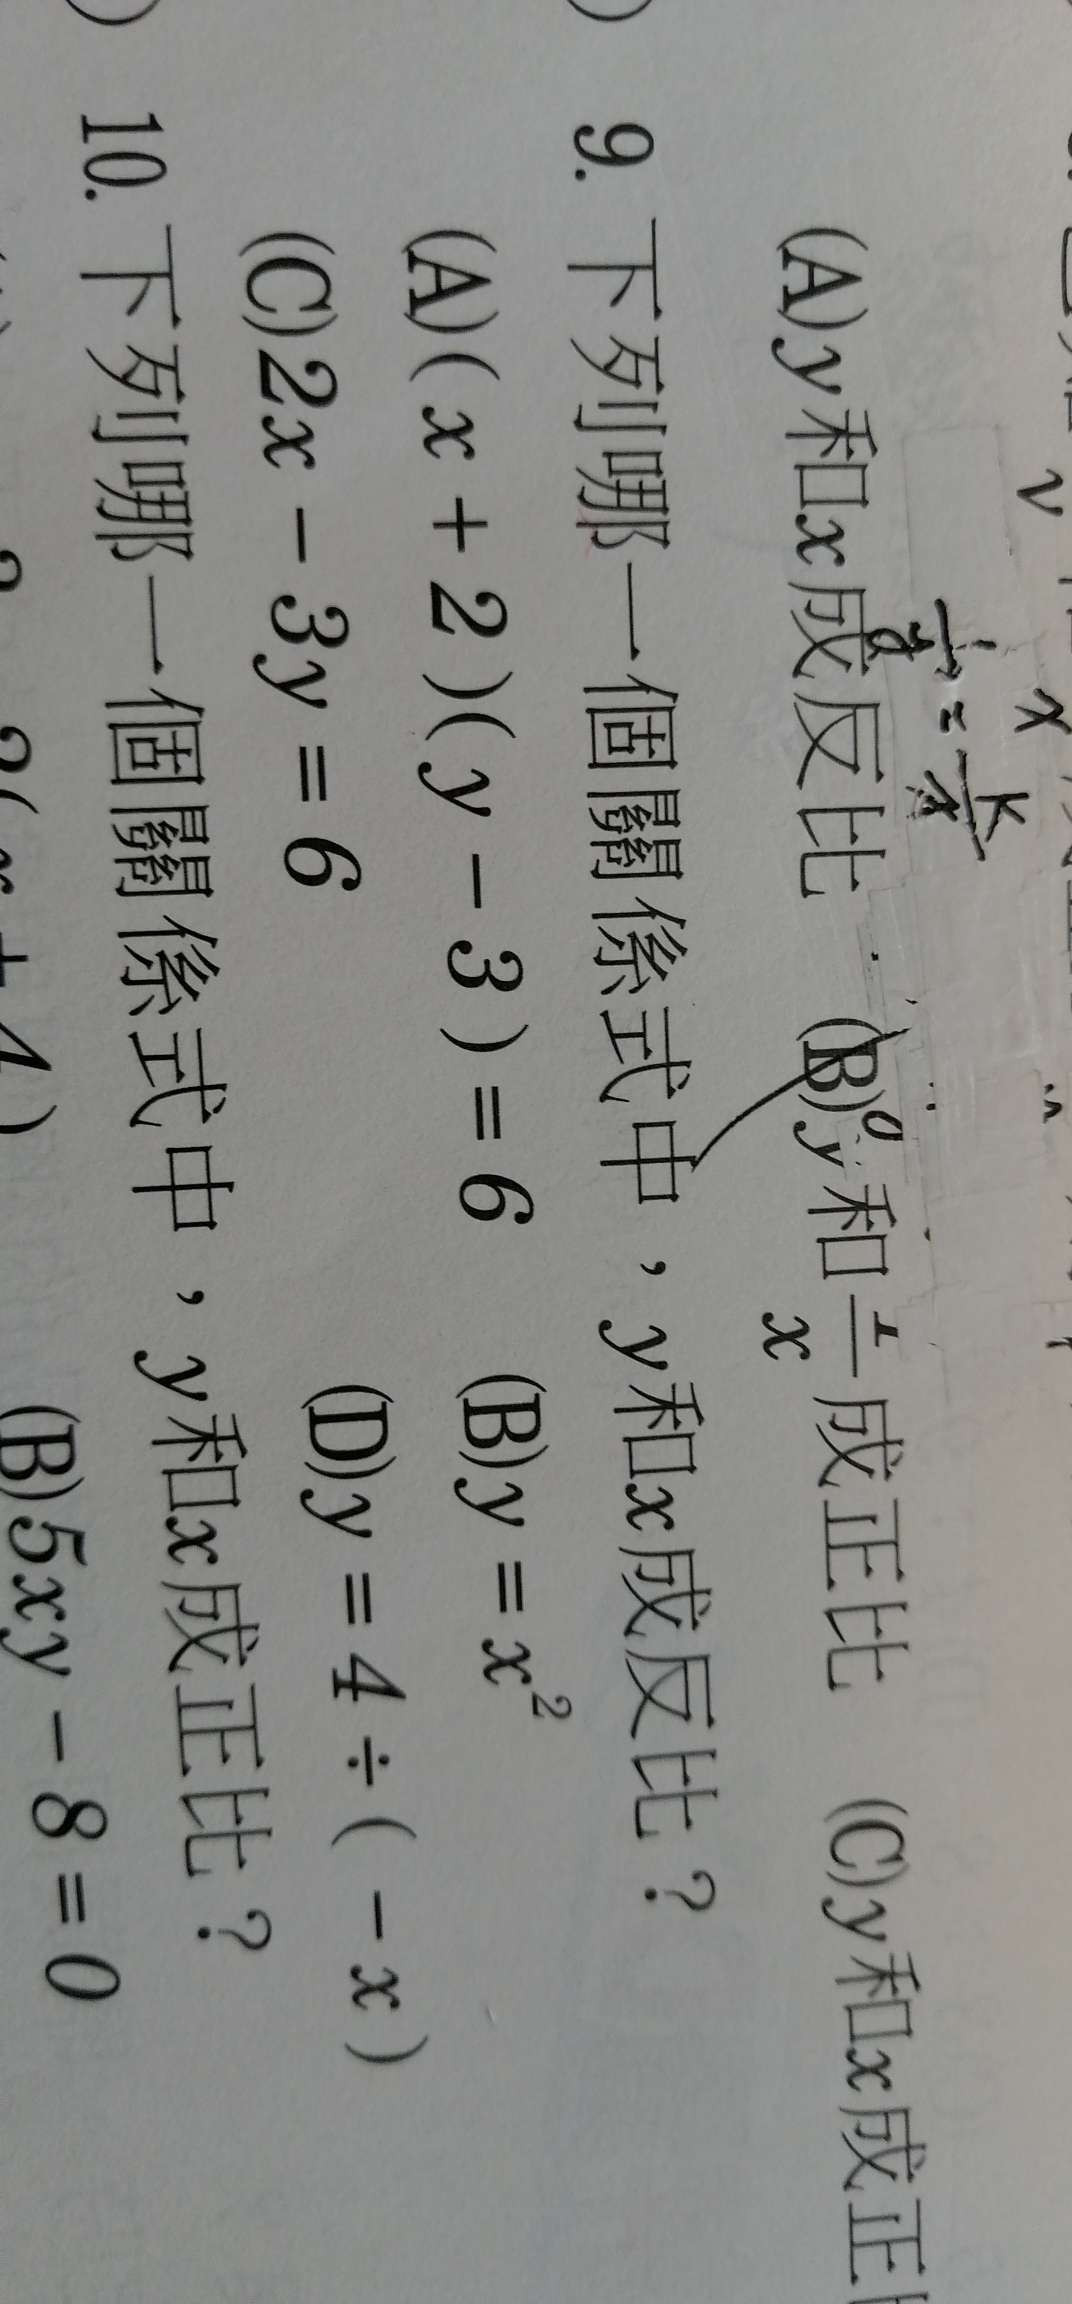 (A)y和x成反比 (B)y和1/x成正比 (C)y和x成正
9. 下列哪一個關係式中，y和x成反比？
(A)( x + 2 )( y - 3 ) = 6 (B)y = x²
(C)2x - 3y = 6 (D)y = 4 ÷ ( - x )
10. 下列哪一個關係式中，y和x成正比？
(B)5xy - 8 = 0